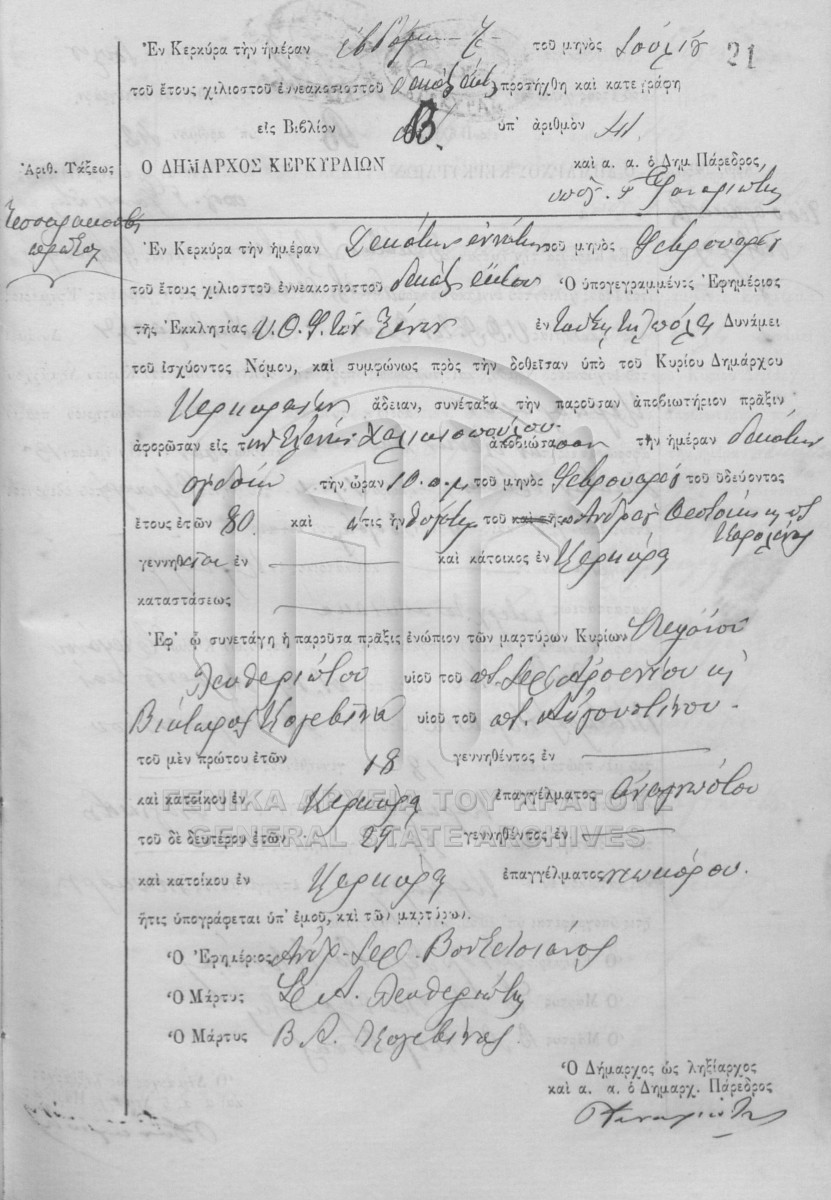 Ἐν Κερκύρα τὴν ἡμέραν ἑβδόμη 7 τοῦ μηνὸς Ἰουλίου 21
τοῦ ἔτους χιλιοστοῦ ἐννεακοσιοστοῦ δεκάτου ἕκτου προσήχθη καὶ κατεγράφη
εἰς Βιβλίον Β ὑπ' ἀριθμὸν 41
Ἀριθ. Τάξεως Ο ΔΗΜΑΡΧΟΣ ΚΕΡΚΥΡΑΙΩΝ καὶ α. α. ὁ Δημ Πάρεδρος
Τεσσαρακοστὴ
πρώτη
Ἐν Κερκύρα τὴν ἡμέραν Δεκάτην ἐννάτην τοῦ μηνὸς Φεβρουαρίου
τοῦ ἔτους χιλιοστοῦ ἐννεακοσιοστοῦ δεκάτου ἕκτου Ὁ ὑπογεγραμμένος Ἐφημέριος
τῆς Ἐκκλησίας Υ. Θ. Φ. τῶν Ξένων ἐν ταύτῃ τῇ πόλει Δυνάμει
τοῦ ἰσχύοντος Νόμου, καὶ συμφώνως πρὸς τὴν δοθεῖσαν ὑπὸ τοῦ Κυρίου Δημάρχου
Κερκυραίων ἄδειαν, συνέταξα τὴν παροῦσαν ἀποβιωτήριον πρᾶξιν
ἀφορῶσαν εἰς τὴν Ἑλένην Χαλικιοπούλου ἀποβιώσασαν τὴν ἡμέραν δεκάτην
ὀγδόην τὴν ὥραν 10 π.μ. τοῦ μηνὸς Φεβρουαρίου τοῦ ὁδεύοντος
ἔτους ἐτῶν 80 καὶ ἥτις ἦν θυγάτηρ τοῦ Ἀνδρέα Θεοτόκη καὶ τῆς
Καρολίνας
γεννηθεῖσα ἐν καὶ κάτοικος ἐν Κερκύρᾳ
καταστάσεως
Ἐφ' ᾧ συνετάγη ἡ παροῦσα πρᾶξις ἐνώπιον τῶν μαρτύρων Κυρίων Στεφάνου
Λευθεριώτου υἱοῦ τοῦ ποτ. Ἀρσενίου καὶ
Βίκτωρος Κογεβίνα υἱοῦ τοῦ ποτ. Αὐγουστίνου.
τοῦ μὲν πρώτου ἐτῶν 18 γεννηθέντος ἐν
καὶ κατοίκου ἐν Κερκύρᾳ ἐπαγγέλματος ἀναγνώστου
ΓΕΝΙΚΑ ΑΡΧΕΙΑ ΤΟΥ ΚΡΑΤΟΥΣ
τοῦ δὲ δευτέρου ἐτῶν 29 γεννηθέντος ἐν
GENERAL STATE ARCHIVES
καὶ κατοίκου ἐν Κερκύρᾳ ἐπαγγέλματος νεωκόρου.
ἥτις ὑπογράφεται ὑπ' ἐμοῦ, καὶ τῶν μαρτύρων.
Ὁ Ἐφημέριος
Ὁ Μάρτυς Σ. Α. Λευθεριώτης
Ὁ Μάρτυς Β. Α. Κογεβίνας
Ὁ Δήμαρχος ὡς ληξίαρχος
καὶ α. α. ὁ Δημαρχ. Πάρεδρος